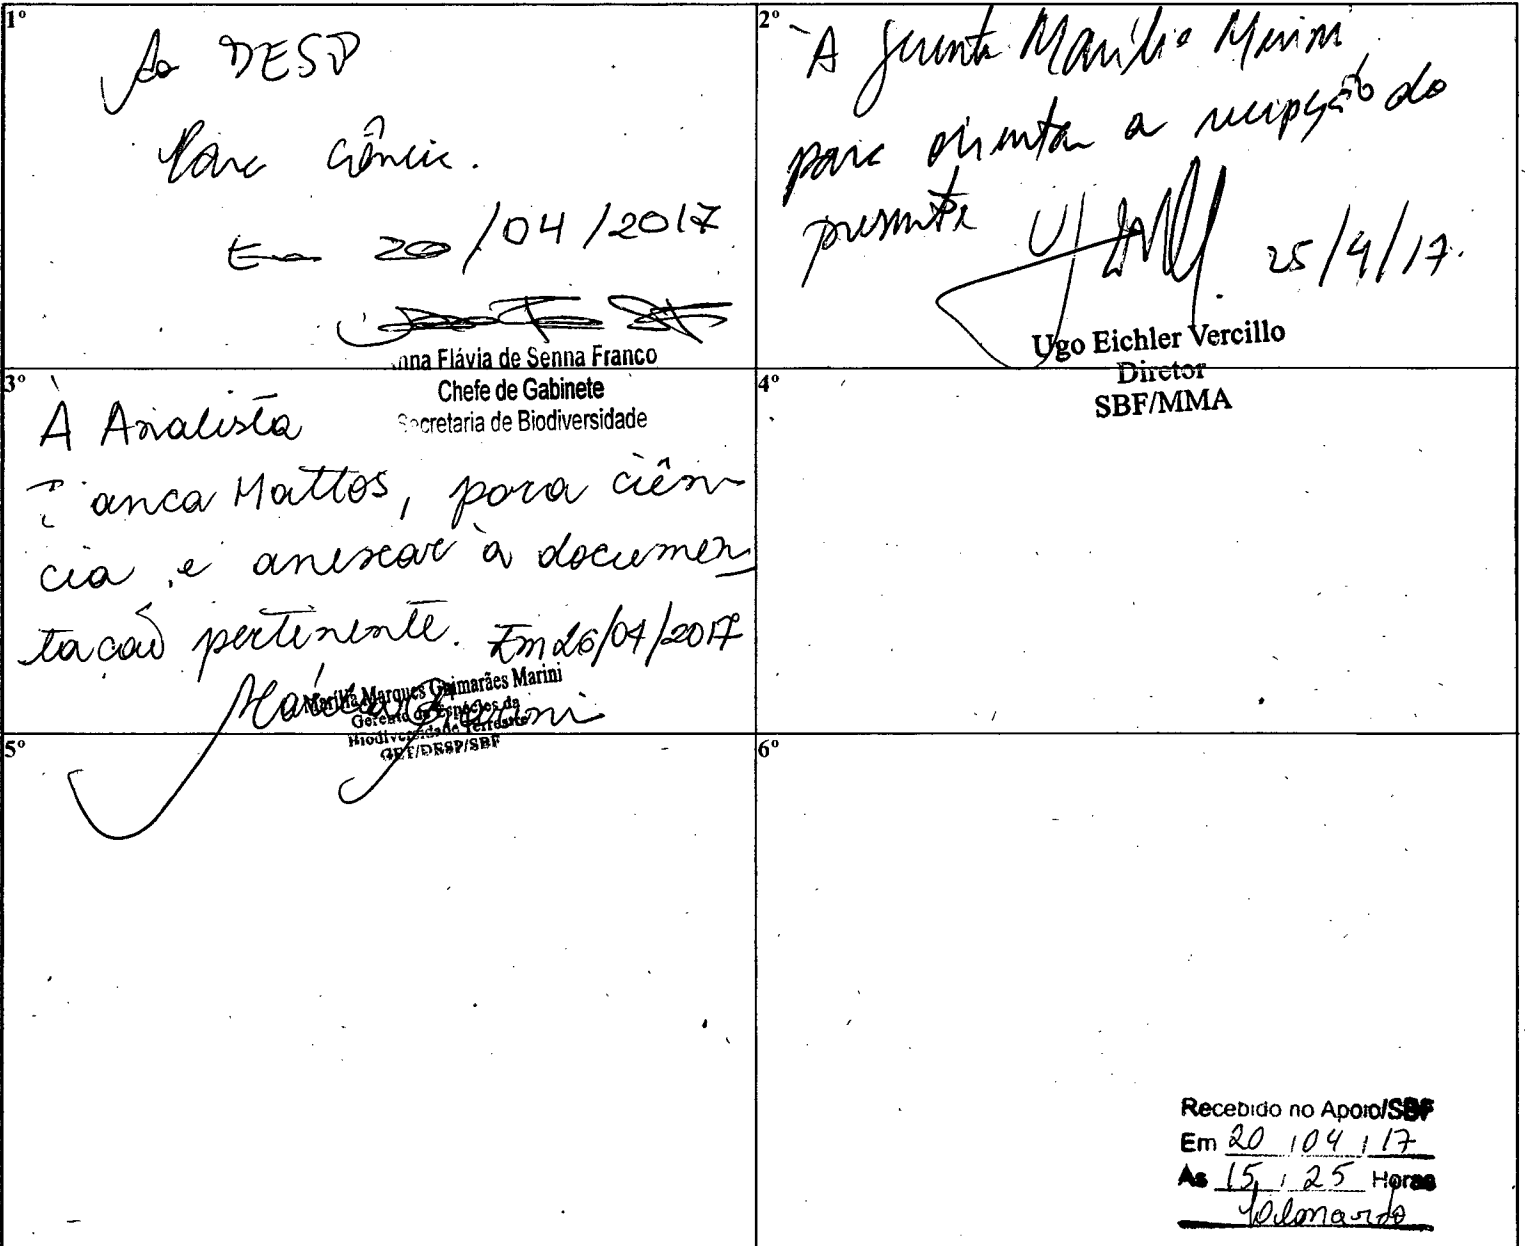 1º
Ao DESP
Para ciência.
Em 20/04/2017
nna Flávia de Senna Franco
Chefe de Gabinete
Secretaria de Biodiversidade
2º
À Gerente Marília Marini
para orientar a recepção do
presente
25/4/17.
Ugo Eichler Vercillo
Diretor
SBF/MMA
3º
À Analista
anca Mattos, para ciên
cia e anexar à documen
tacaõ pertinente. Em 26/04/2017
Marília Marques Guimarães Marini
Gerente de Espécies da
Biodiversidade Terrestre
GET/DESP/SBF
4º
5º
6º
Recebido no Apoio/SBF
Em 20/04/17
As 15,25 Horas